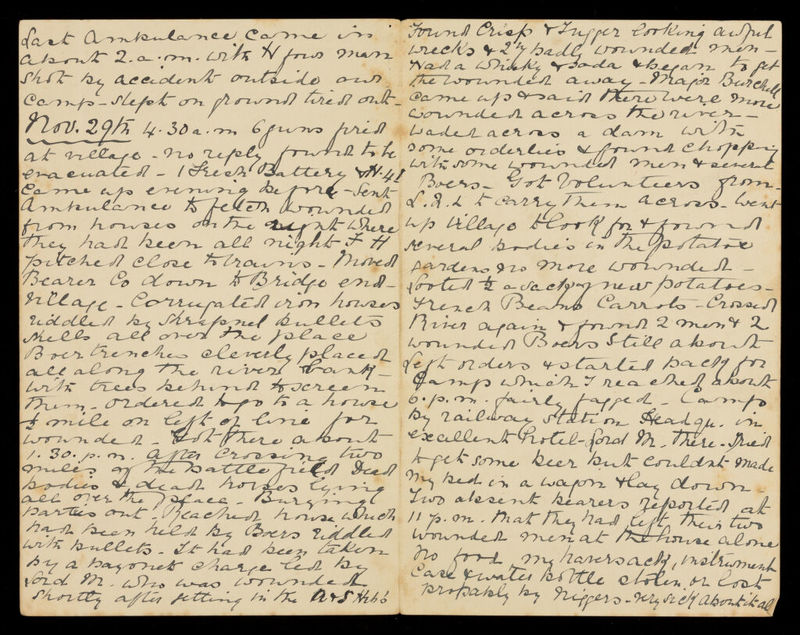 Last Ambulance came in
about 2.a.m. with H four men
shot by accident outside our
Camp - Slept on ground tired out -
Nov. 29th 4.30 a.m 6 guns fired
at village - no reply found to be
evacuated - 1 Fresh Battery & H.41
Came up evening before - Sent
Ambulance to fetch wounded
from houses on the right where
they had been all night F H
pitched close to trains - Moved
Bearer Co down to Bridge end -
village - Corrugated iron houses
riddled by shrapnel bullets
shells all over the place
Boer trenches cleverly placed
all along the river bank -
with trees behind to screen
them - ordered to go to a house
½ mile on left of line for
wounded - Got there about
1.30. p.m. after crossing two
miles of the battle field Dead
bodies & dead horses lying
all over the place - Burying
parties out Reached house which
had been held by Boers riddled
with bullets - It had been taken
by a bayonet charge led by
Lord M. who was wounded
shortly after getting in the A & S Hrs
Found Crisp & Tugger looking awful
wrecks & 27 badly wounded men -
Had a whisky & soda & began to get
the wounded away - Major Burchell
came up & said there were more
wounded across the river -
waded across a dam with
some orderlies & found Chopping
with some wounded men & several
Boers - Got Volunteers from
L.R.L to carry them across - went
up village to look for & found
several bodies in the potatoe
gardens no more wounded -
Looted ½ a sack of new potatoes -
French Beans Carrots - Crossed
River again & found 2 men & 2
wounded Boers still about
Left orders & started back for
Camp which I reached about
6.p.m. fairly fagged - Camp
by railway station Headqu. in
excellent hotel - Lord M. there - Tried
to get some beer but couldnt made
my bed in a wagon & lay down -
Two absent bearers reported at
11 p.m. that they had left their two
wounded men at the house alone
no food my haversack, instrument
Case & water bottle stolen, or lost
probably by niggers - very sick about it all